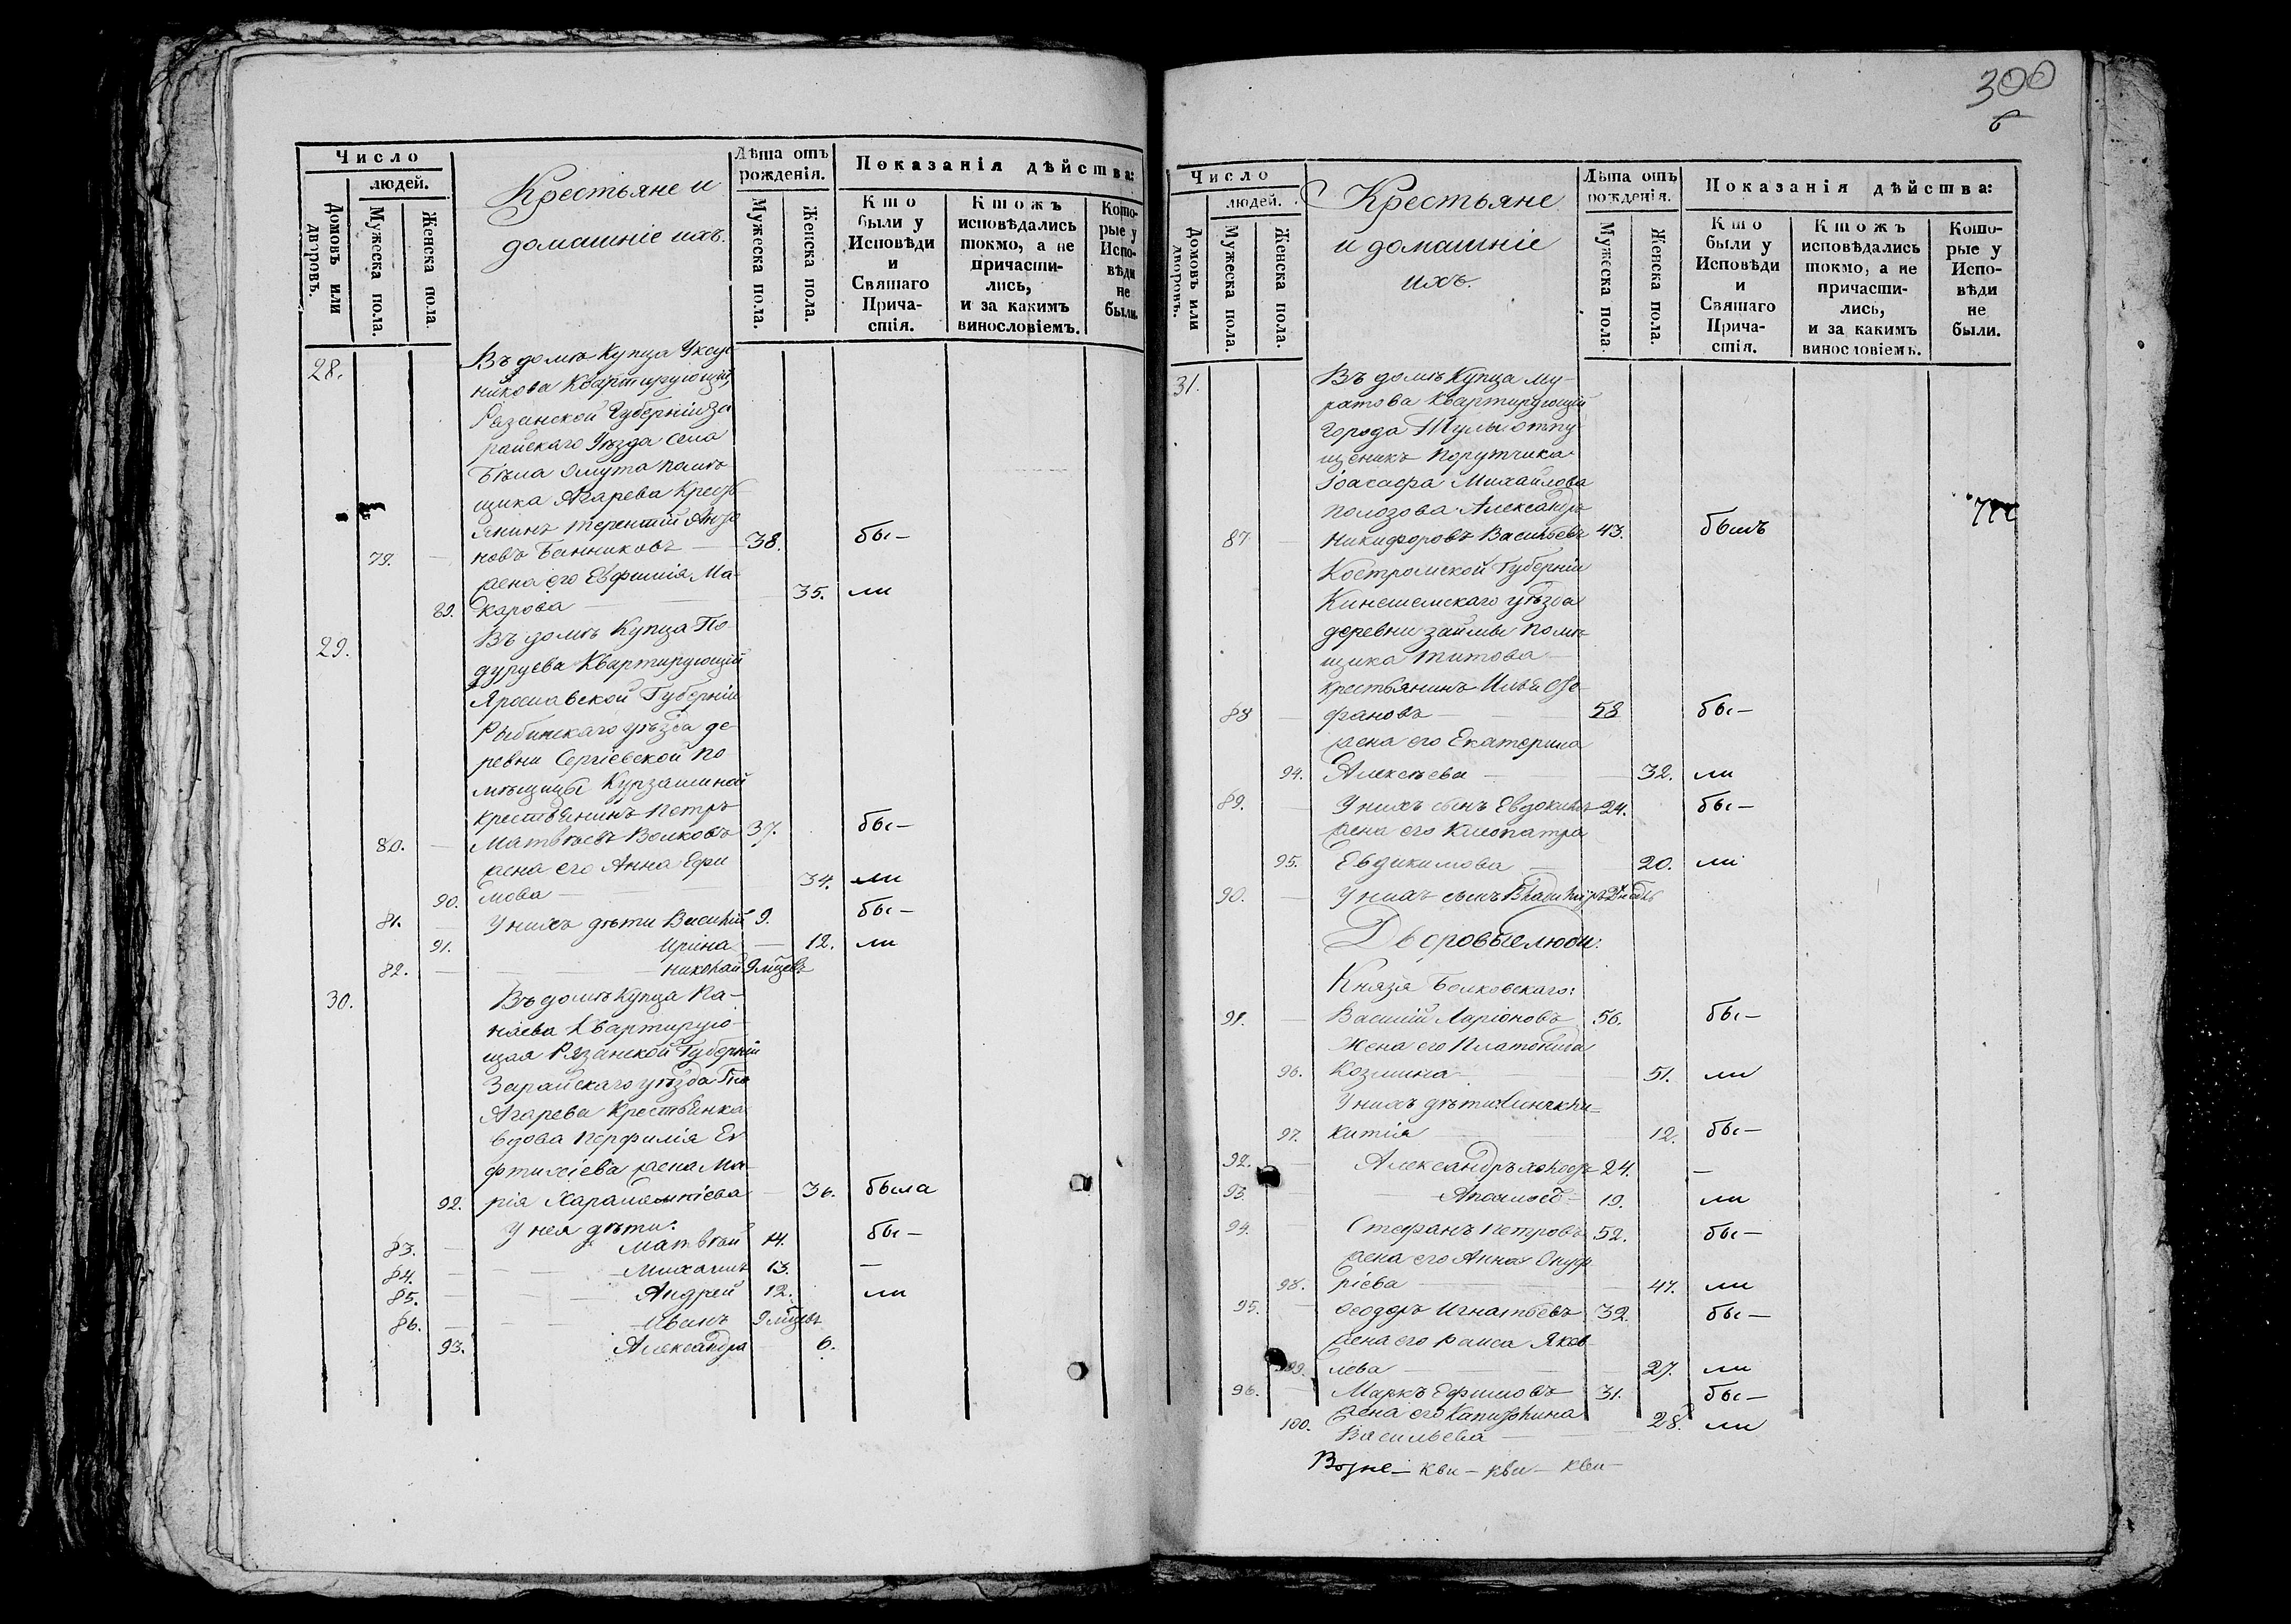 Число
людей.
Домовъ или дворовъ.
Мужеска пола.
Женска пола
Крестьяне и
домашніе ихъ.
Лѣта отъ рожденія.
Мужеска пола.
Женска пола.
Показанія дѣйства:
Кто были у Исповѣди и Святаго Прича-стія.
Ктожъ исповѣдались токмо, а не причасти-лись, и за какимъ винословіемъ.
Кото-рые у Испо-вѣди не были.
28.
Въ домѣ Купца Уксус
никова Квартирующій
Рязанской Губерніи За
райскаго Уѣзда села
Бѣла омута помѣ
щика Агарева Кресть
янинъ Терентій
79. новъ Банниковъ — 38. бы—
жена его Евфимія Ма-
89. карова — 35. ли
29. Въ домѣ Купца По
дуруева Квартирующій
Ярославской Губерніи
Рыбинскаго уѣзда де
ревни Сергіевской по
мѣщицы Курзашиной
крестьянинъ Петръ
80. Матвѣевъ Волковъ 37. бы—
жена его Анна Ефи
90. мова — 34. ли
81. У нихъ дѣти Василій 9. бы—
91. Ирина — 12. ли
82. Николай 9 мѣцевъ
30. Въ домѣ Купца Па-
наева Квартирую-
щая Рязанской Губерніи
Зарайскаго уѣзда Гна
Агарева Крестьянка
вдова Перфилія Ев
фтихіева жена Ма-
92. рія Харалампіева — 36. была
У нея дѣти:
83. Матвѣй 14. бы—
84. Михаилъ 13. —
85. Андрей 12. ли
86. Иванъ 9 мѣцевъ
93. Александра 6.
300
Число
людей.
Домовъ или дворовъ.
Мужеска пола.
Женска пола.
Крестьяне
и домашніе
ихъ.
Лѣта отъ рожденія.
Мужеска пола.
Женска пола.
Показанія дѣйства:
Кто были у Исповѣди и Святаго Прича-стія.
Ктожъ исповѣдались токмо, а не причасти-лись, и за какимъ винословіемъ.
Кото-рые у Испо-вѣди не были.
31. Въ домѣ Купца Му-
ратова Квартирующій
города Тулы отпу
щеникъ Порутчика
Іоасафа Михайлова
Полозова Александръ
87 Никифоровъ Васильевъ 43. былъ
Костромской Губерніи
Кинешемскаго уѣзда
деревни Займы помѣ
щика Титова —
крестьянинъ Илья Сте
88 фановъ — 58 бы—
жена его Екатерина
94. Алексѣева — 32. ли
89. У нихъ сынъ Евдокимъ 24. бы—
жена его Клеопатра
95. Евдокимова — 20. ли
90. У нихъ сынъ Владиміръ
Дворовые люди:
Князя Волконскаго:
91. Василій Ларіоновъ 56. бы—
Жена его Платонида
96. Козмина — 51. ли
У нихъ дѣти:
97. китія — 12. бы—
92. Александръ 24. —
93. 19. ли
94. Стефанъ Петровъ 52. бы—
жена его Анна Онуф
98. ріева — 47. ли
95. Ѳеодоръ Игнатьевъ 32. бы—
жена его Раиса Яков
99. лева — 27. ли
96. Маркъ Ефимовъ 31. бы—
жена его Капитолина
100. Васильева — 28. ли